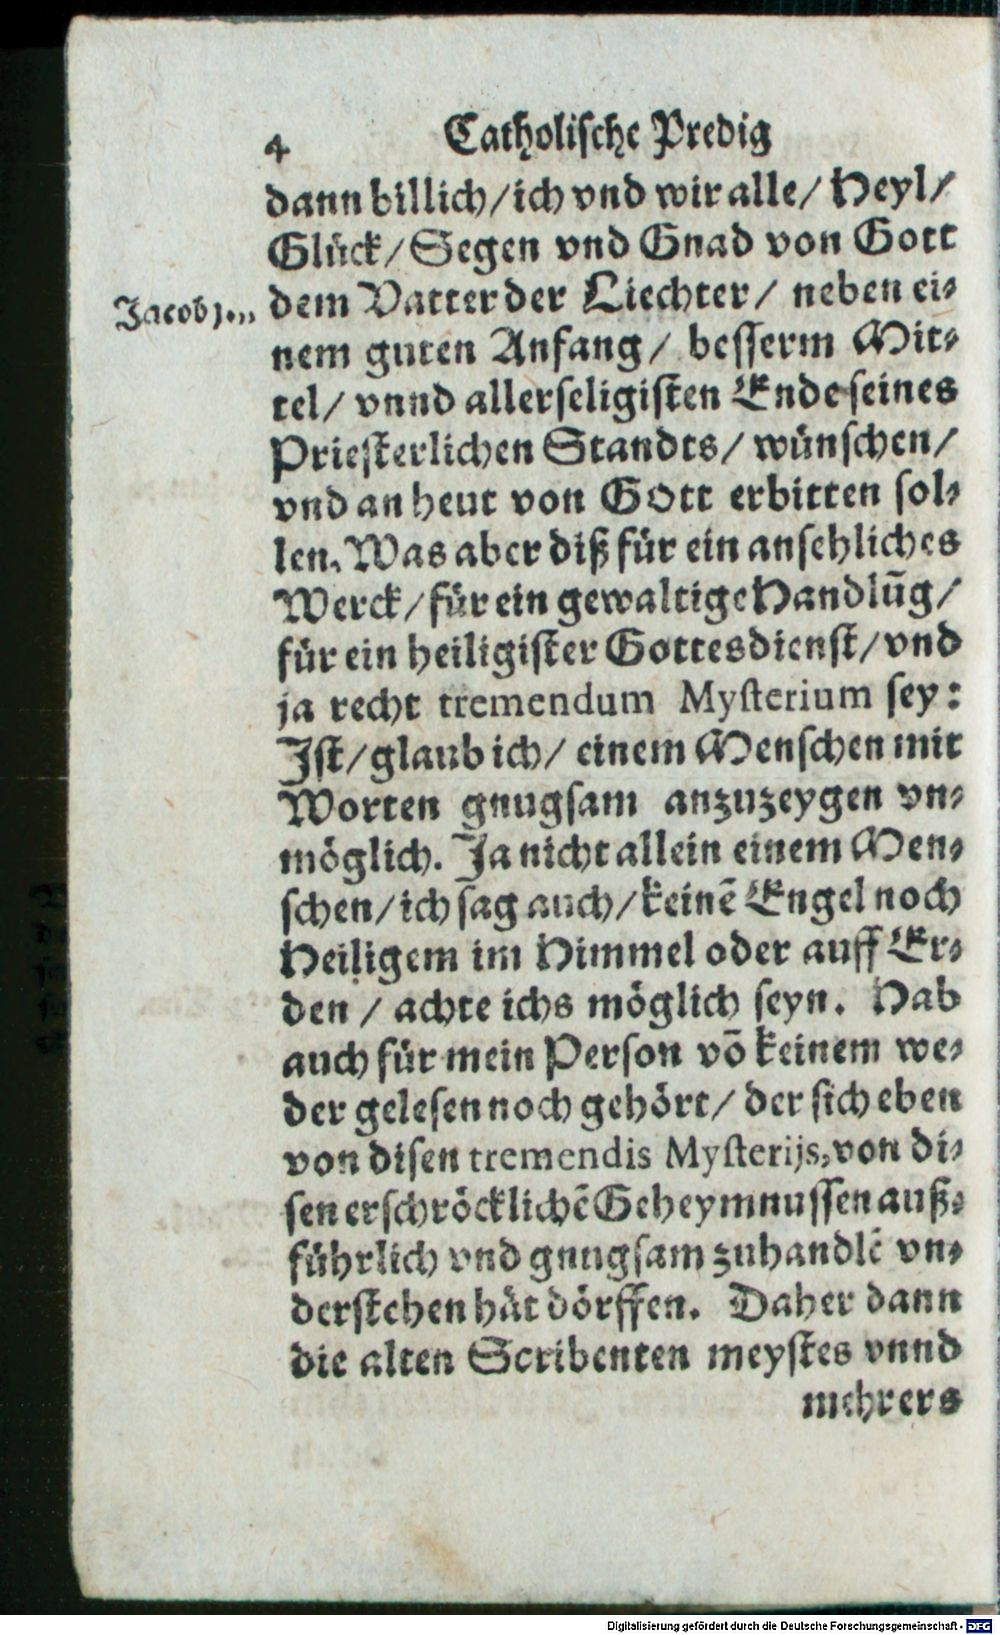 4 Catholische Predig
dann billich/ ich vnd wir alle/ Heyl/
Glück/ Segen vnd Gnad von Gott
Jacob j.
dem Vatter der Liechter/ neben ei-
nem guten Anfang/ besserm Mit-
tel/ vnnd allerseligisten Ende seines
Priesterlichen Standts/ wünschen/
vnd an heut von GOtt erbitten sol-
len. Was aber diß für ein ansehliches
Werck/ für ein gewaltige Handlūg/
für ein heiligister Gottesdienst/ vnd
ja recht tremendum Mysterium sey:
Ist/ glaub ich/ einem Menschen mit
Worten gnugsam anzuzeygen vn-
möglich. Ja nicht allein einem Men-
schen/ ich sag auch/ keinē Engel noch
Heiligem im Himmel oder auff Er-
den/ achte ichs möglich seyn. Hab
auch für mein Person vō keinem we-
der gelesen noch gehört/ der sich eben
von disen tremendis Mysterijs, von di-
sen erschröcklichē Geheymnussen auß-
führlich vnd gnugsam zuhandlē vn-
derstehen hät dörffen. Daher dann
die alten Scribenten meystes vnnd
mehrers
Digitalisierung gefördert durch die Deutsche Forschungsgemeinschaft - DFG